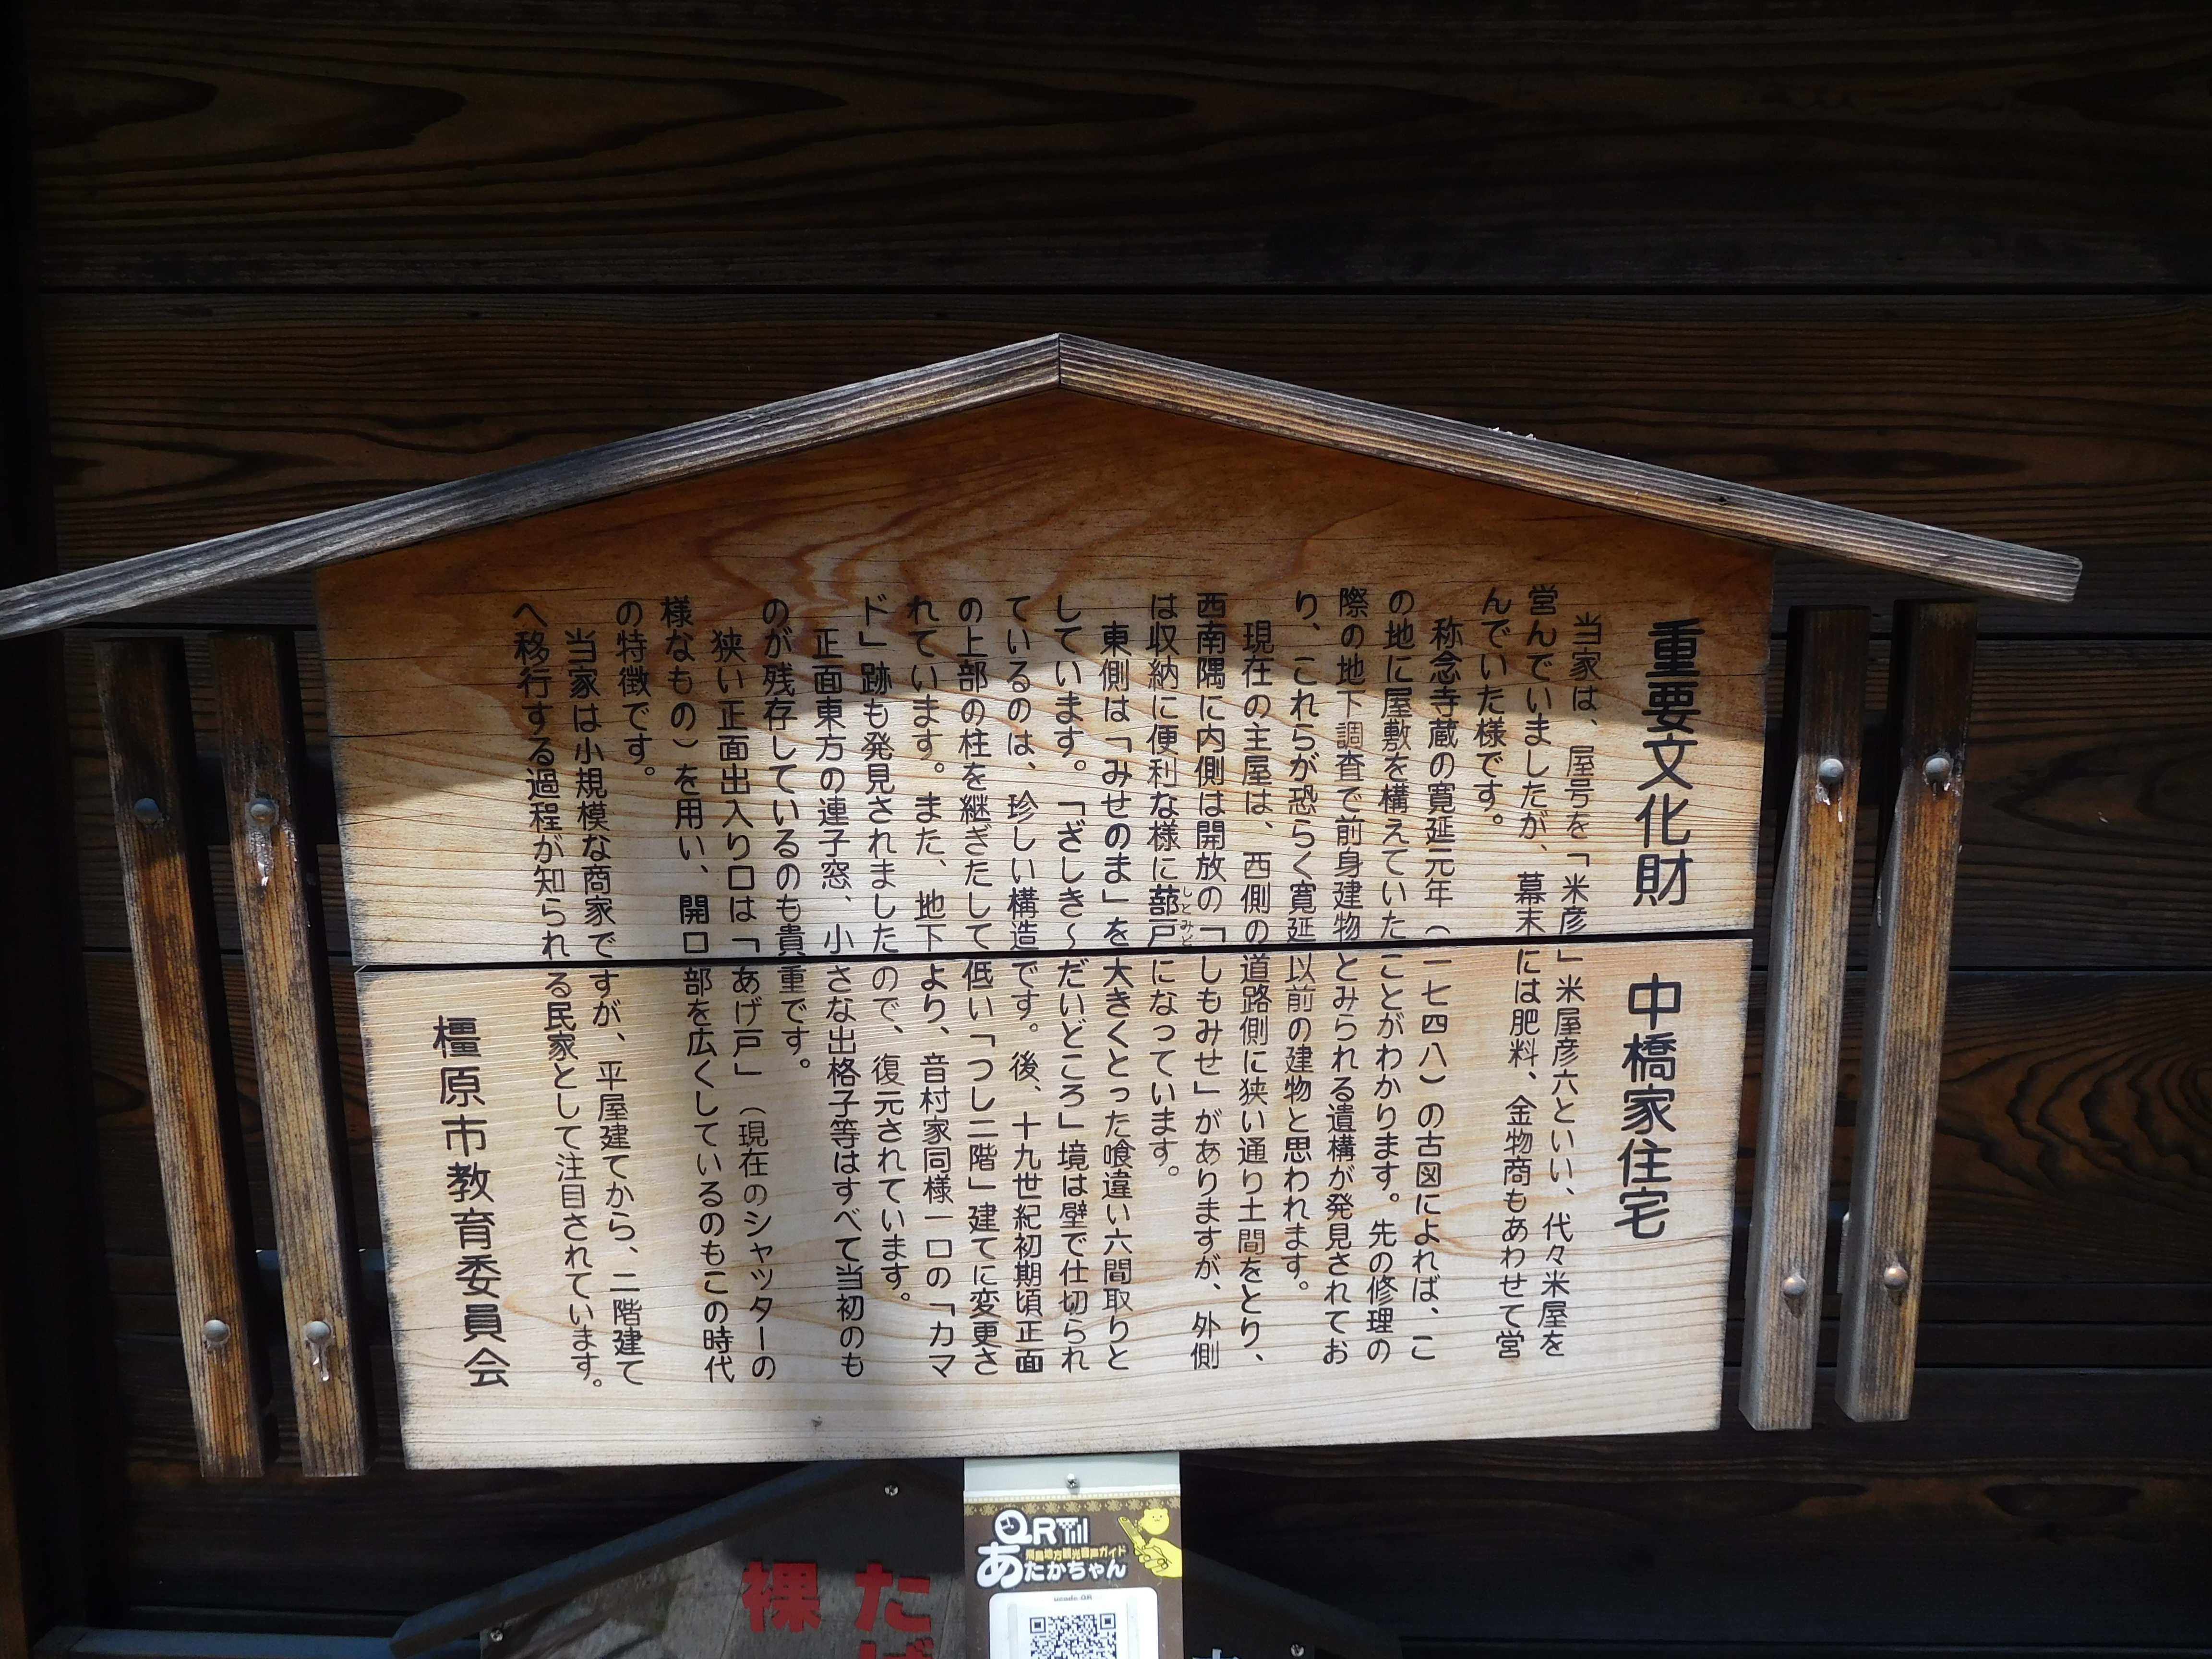 重要文化財　中橋家住宅
当家は、屋号を「米彦」米屋彦六といい、代々米屋を
営んでいましたが、幕末には肥料、金物商もあわせて営
んでいた様です。
称念寺蔵の寛延元年（一七四八）の古図によれば、こ
の地に屋敷を構えていたことがわかります。先の修理の
際の地下調査で前身建物とみられる遺構が発見されてお
り、これらが恐らく寛延以前の建物と思われます。
現在の主屋は、西側の道路側に狭い通り土間をとり、
西南隅に内側は開放の「しもみせ」がありますが、外側
は収納に便利な様に蔀戸になっています。
しとみど
東側は「みせのま」を大きくとった喰違い六間取りと
しています。「ざしき〜だいどころ」境は壁で仕切られ
ているのは、珍しい構造です。後、十九世紀初期頃正面
の上部の柱を継ぎたして低い「つし二階」建てに変更さ
れています。また、地下より、音村家同様一口の「カマ
ド」跡も発見されましたので、復元されています。
正面東方の連子窓、小さな出格子等はすべて当初のも
のが残存しているのも貴重です。
狭い正面出入り口は「あげ戸」（現在のシャッターの
様なもの）を用い、開口部を広くしているのもこの時代
の特徴です。
当家は小規模な商家ですが、平屋建てから、二階建て
へ移行する過程が知られる民家として注目されています。
橿原市教育委員会
QR
飛鳥地方観光音声ガイド
あたかちゃん
ucode QR
たば
裸